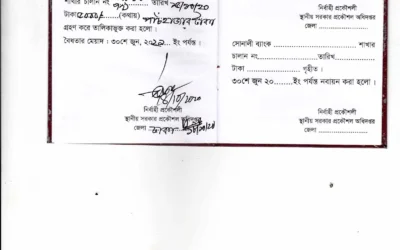 শাখার চালান নং তারিখ
টাকা ৫০০০/- (কথায়) পাঁচ হাজার টাকা
গ্রহণ করে তালিকাভুক্ত করা হলো।
বৈধতার মেয়াদ : ৩০শে জুন, ২০২১ ইং পর্যন্ত।
নির্বাহী প্রকৌশলী
স্থানীয় সরকার প্রকৌশল অধিদপ্তর
জেলা
নির্বাহী প্রকৌশলী
স্থানীয় সরকার প্রকৌশল অধিদপ্তর
জেলা ........................
সোনালী ব্যাংক ........................ শাখার
চালান নং........................তারিখ....................
টাকা ........................ গৃহীত।
৩০শে জুন ২০.........ইং পর্যন্ত নবায়ন করা হলো।
নির্বাহী প্রকৌশলী
স্থানীয় সরকার প্রকৌশল অধিদপ্তর
জেলা ........................